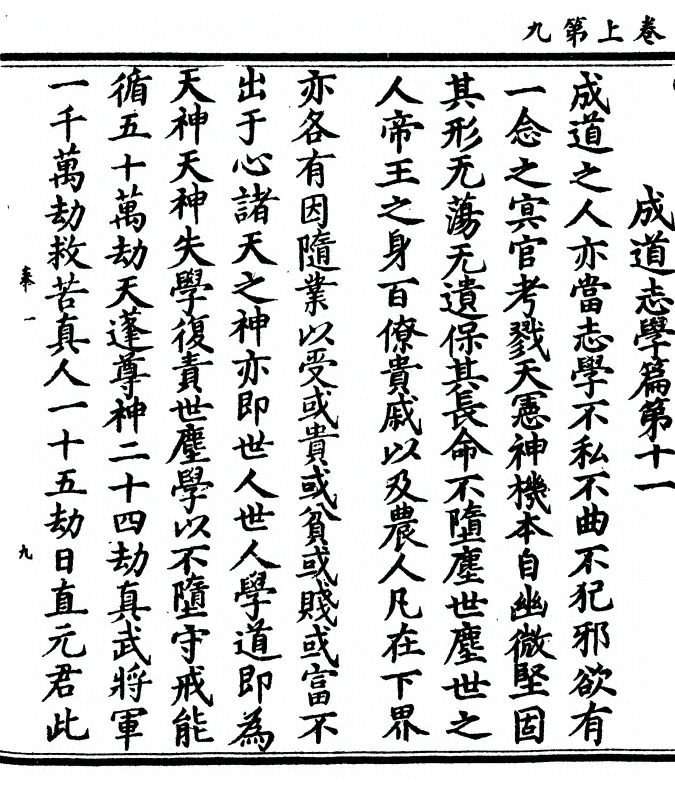 卷上第九
成道志學篇第十一
成道之人亦當志學不私不曲不犯邪欲有
一念之㝠官考戮天憲神機本自幽微堅固
其形无蕩无遺保其長命不墮塵世塵世之
人帝王之身百僚貴戚以及農人凡在下界
亦各有因隨業以受或貴或貧或賤或富不
出于心諸天之神亦即世人世人學道即為
天神天神失學復責世塵學以不墮守戒能
循五十萬劫天蓬尊神二十四劫真武將軍
一千萬劫救苦真人一十五劫日直元君此
奉一
九